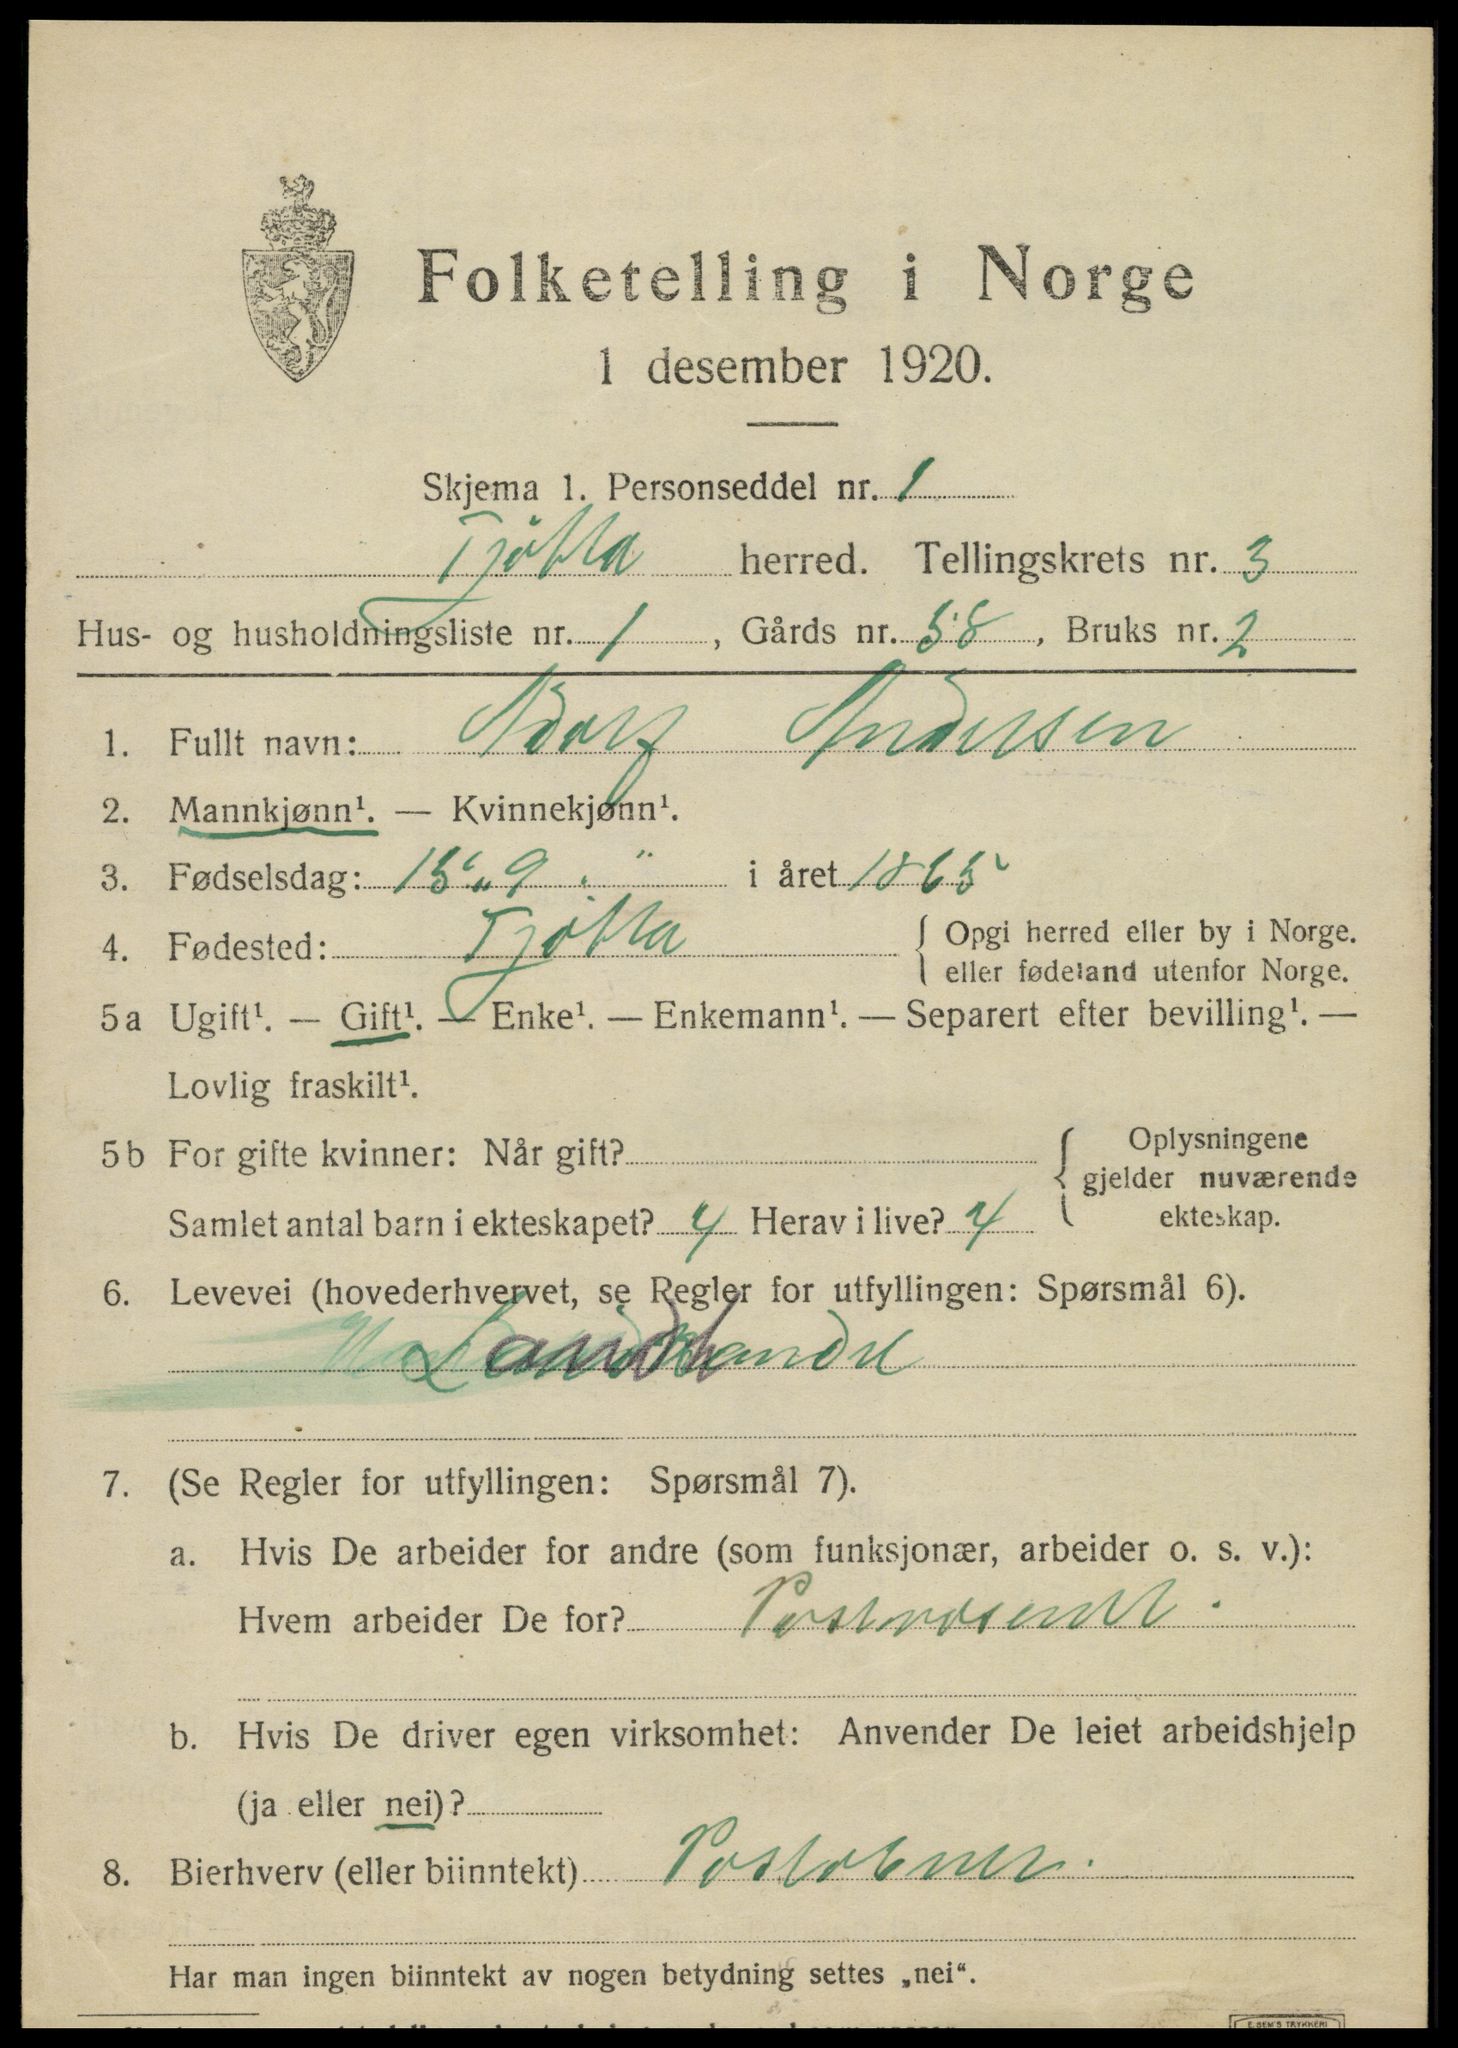 Folketelling i Norge
1 desember 1920.
Skjema 1. Personseddel nr. 1
Tjøtta herred. Tellingskrets nr. 3
Hus- og husholdningsliste nr. 1, Gårds nr. 58, Bruks nr. 2
1. Fullt navn: Adolf Andersen
2. Mannkjønn¹. — Kvinnekjønn¹.
3. Fødselsdag: 15 „ 9 . " i året 1865
4. Fødested: Tjøtta { Opgi herred eller by i Norge.
eller fødeland utenfor Norge.
5a Ugift¹. — Gift¹. — Enke¹. — Enkemann¹. — Separert efter bevilling¹. —
Lovlig fraskilt¹.
5b For gifte kvinner: Når gift?
Samlet antal barn i ekteskapet? 4 Herav i live? 4
{ Oplysningene
gjelder nuværende
ekteskap.
6. Levevei (hovederhvervet, se Regler for utfyllingen: Spørsmål 6).
Landhandel
7. (Se Regler for utfyllingen: Spørsmål 7).
a. Hvis De arbeider for andre (som funksjonær, arbeider o. s. v.):
Hvem arbeider De for? Postvæsenet.
b. Hvis De driver egen virksomhet: Anvender De leiet arbeidshjelp
(ja eller nei)?
8. Bierhverv (eller biinntekt) Postobner.
Har man ingen biinntekt av nogen betydning settes „nei“.
E. SEM'S TRYKKERI